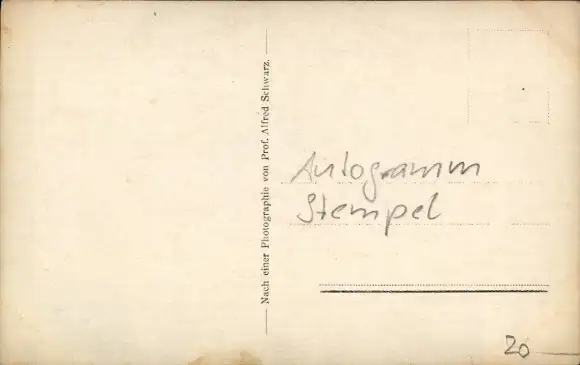 Nach einer Photographie von Prof. Alfred Schwarz.
Autogramm
Stempel
20